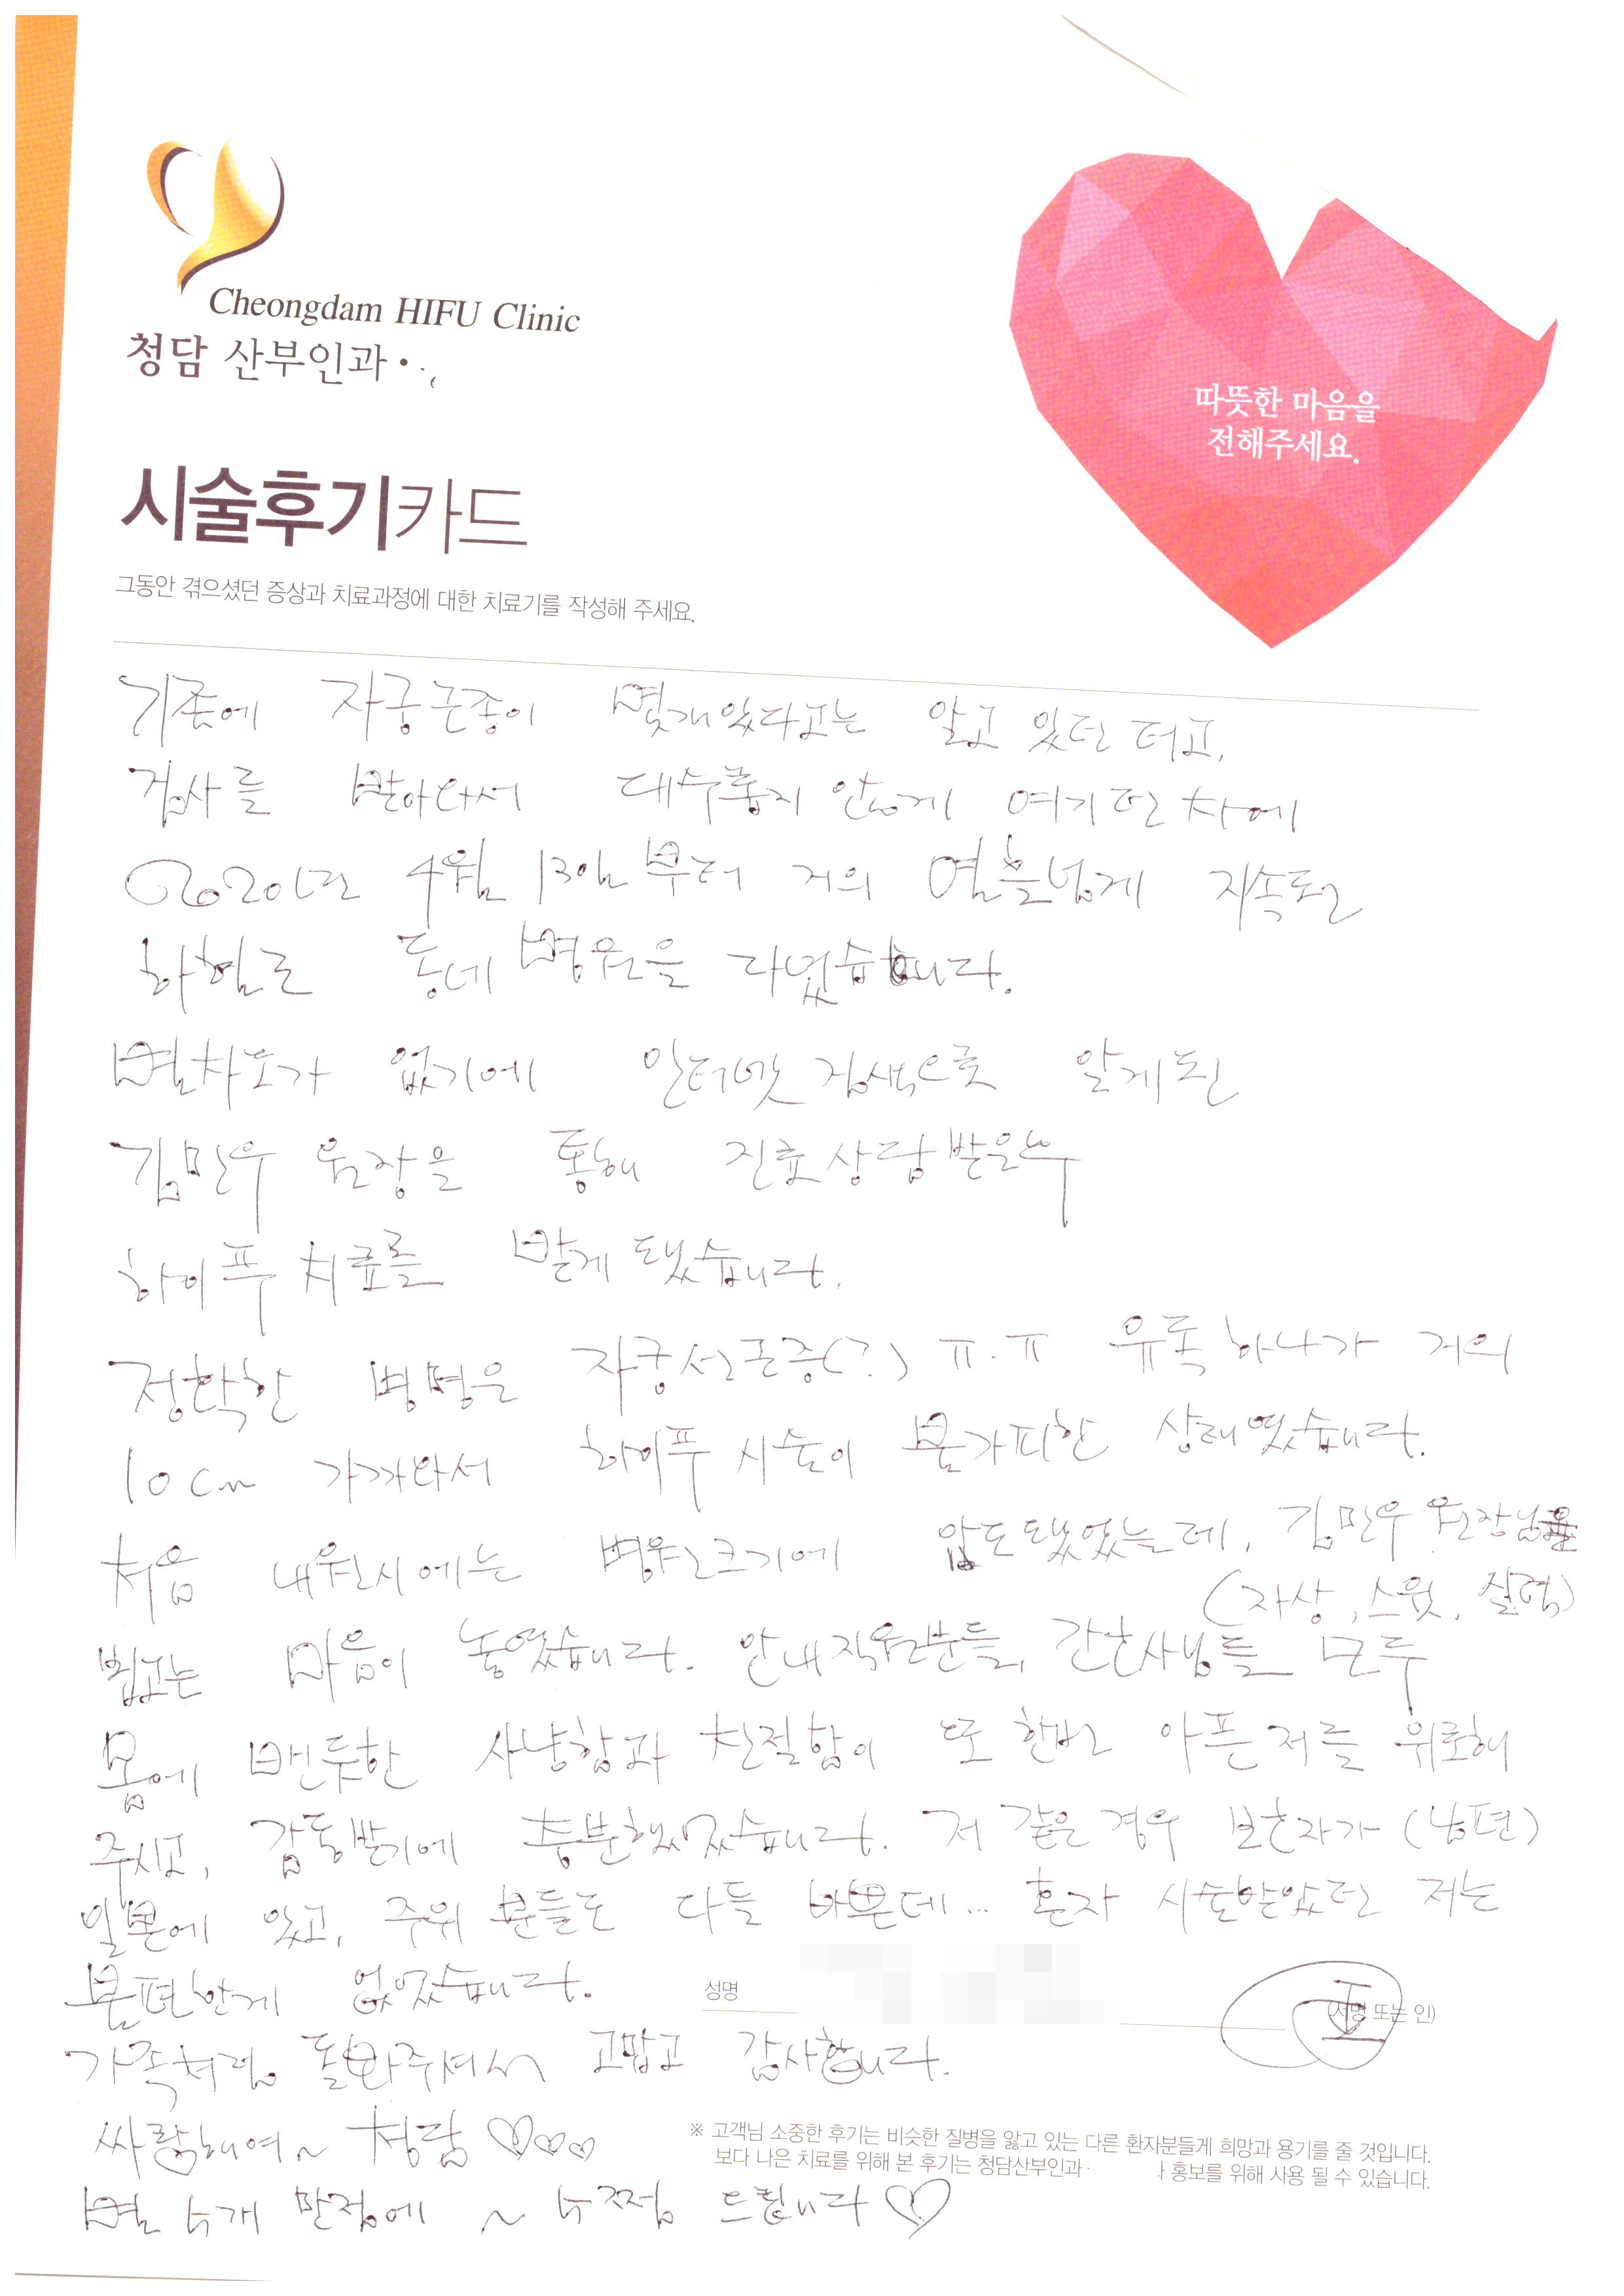 Cheongdam HIFU Clinic
청담 산부인과
따뜻한 마음을
전해주세요.
시술후기카드
그동안 겪으셨던 증상과 치료과정에 대한 치료기를 작성해 주세요.
기존에 자궁근종이 몇개있다고는 알고 있던 터고,
검사를 받아와서 대수롭지 않게 여기던 차에
2020년 4월 13일부터 거의 열흘넘게 지속된
하혈로 동네 병원을 다녔습니다.
별차도가 없기에 인터넷 검색으로 알게된
김민우 원장을 통해 진료상담받은후
하이푸 치료를 받게 됐습니다.
정확한 병명은 자궁선근증(?) ㅠ.ㅠ 유독 하나가 거의
10cm 가까와서 하이푸 시술이 불가피한 상태였습니다.
처음 내원시에는 병원크기에 압도됐었는데, 김민우 원장님을
(자상, 스윗, 실력)
뵙고는 마음이 놓였습니다. 안내직원분들, 간호사님들 모두
몸에 밴듯한 사냥함과 친절함이 또 한번 아픈 저를 위로해
주시고, 감동받기에 충분했었습니다. 저 같은 경우 보호자가 (남편)
일본에 있고, 주위 분들도 다들 바쁜데... 혼자 시술받았던 저는
불편한게 없었습니다.
성명 (서명 또는 인)
가족처럼 돌봐주셔서 고맙고 감사합니다.
싸랑해여~ 청담 ♡♡♡
※ 고객님 소중한 후기는 비슷한 질병을 앓고 있는 다른 환자분들게 희망과 용기를 줄 것입니다.
보다 나은 치료를 위해 본 후기는 청담산부인과 홍보를 위해 사용 될 수 있습니다.
별 5개 만점에 ~ 5점 드립니다 ♡